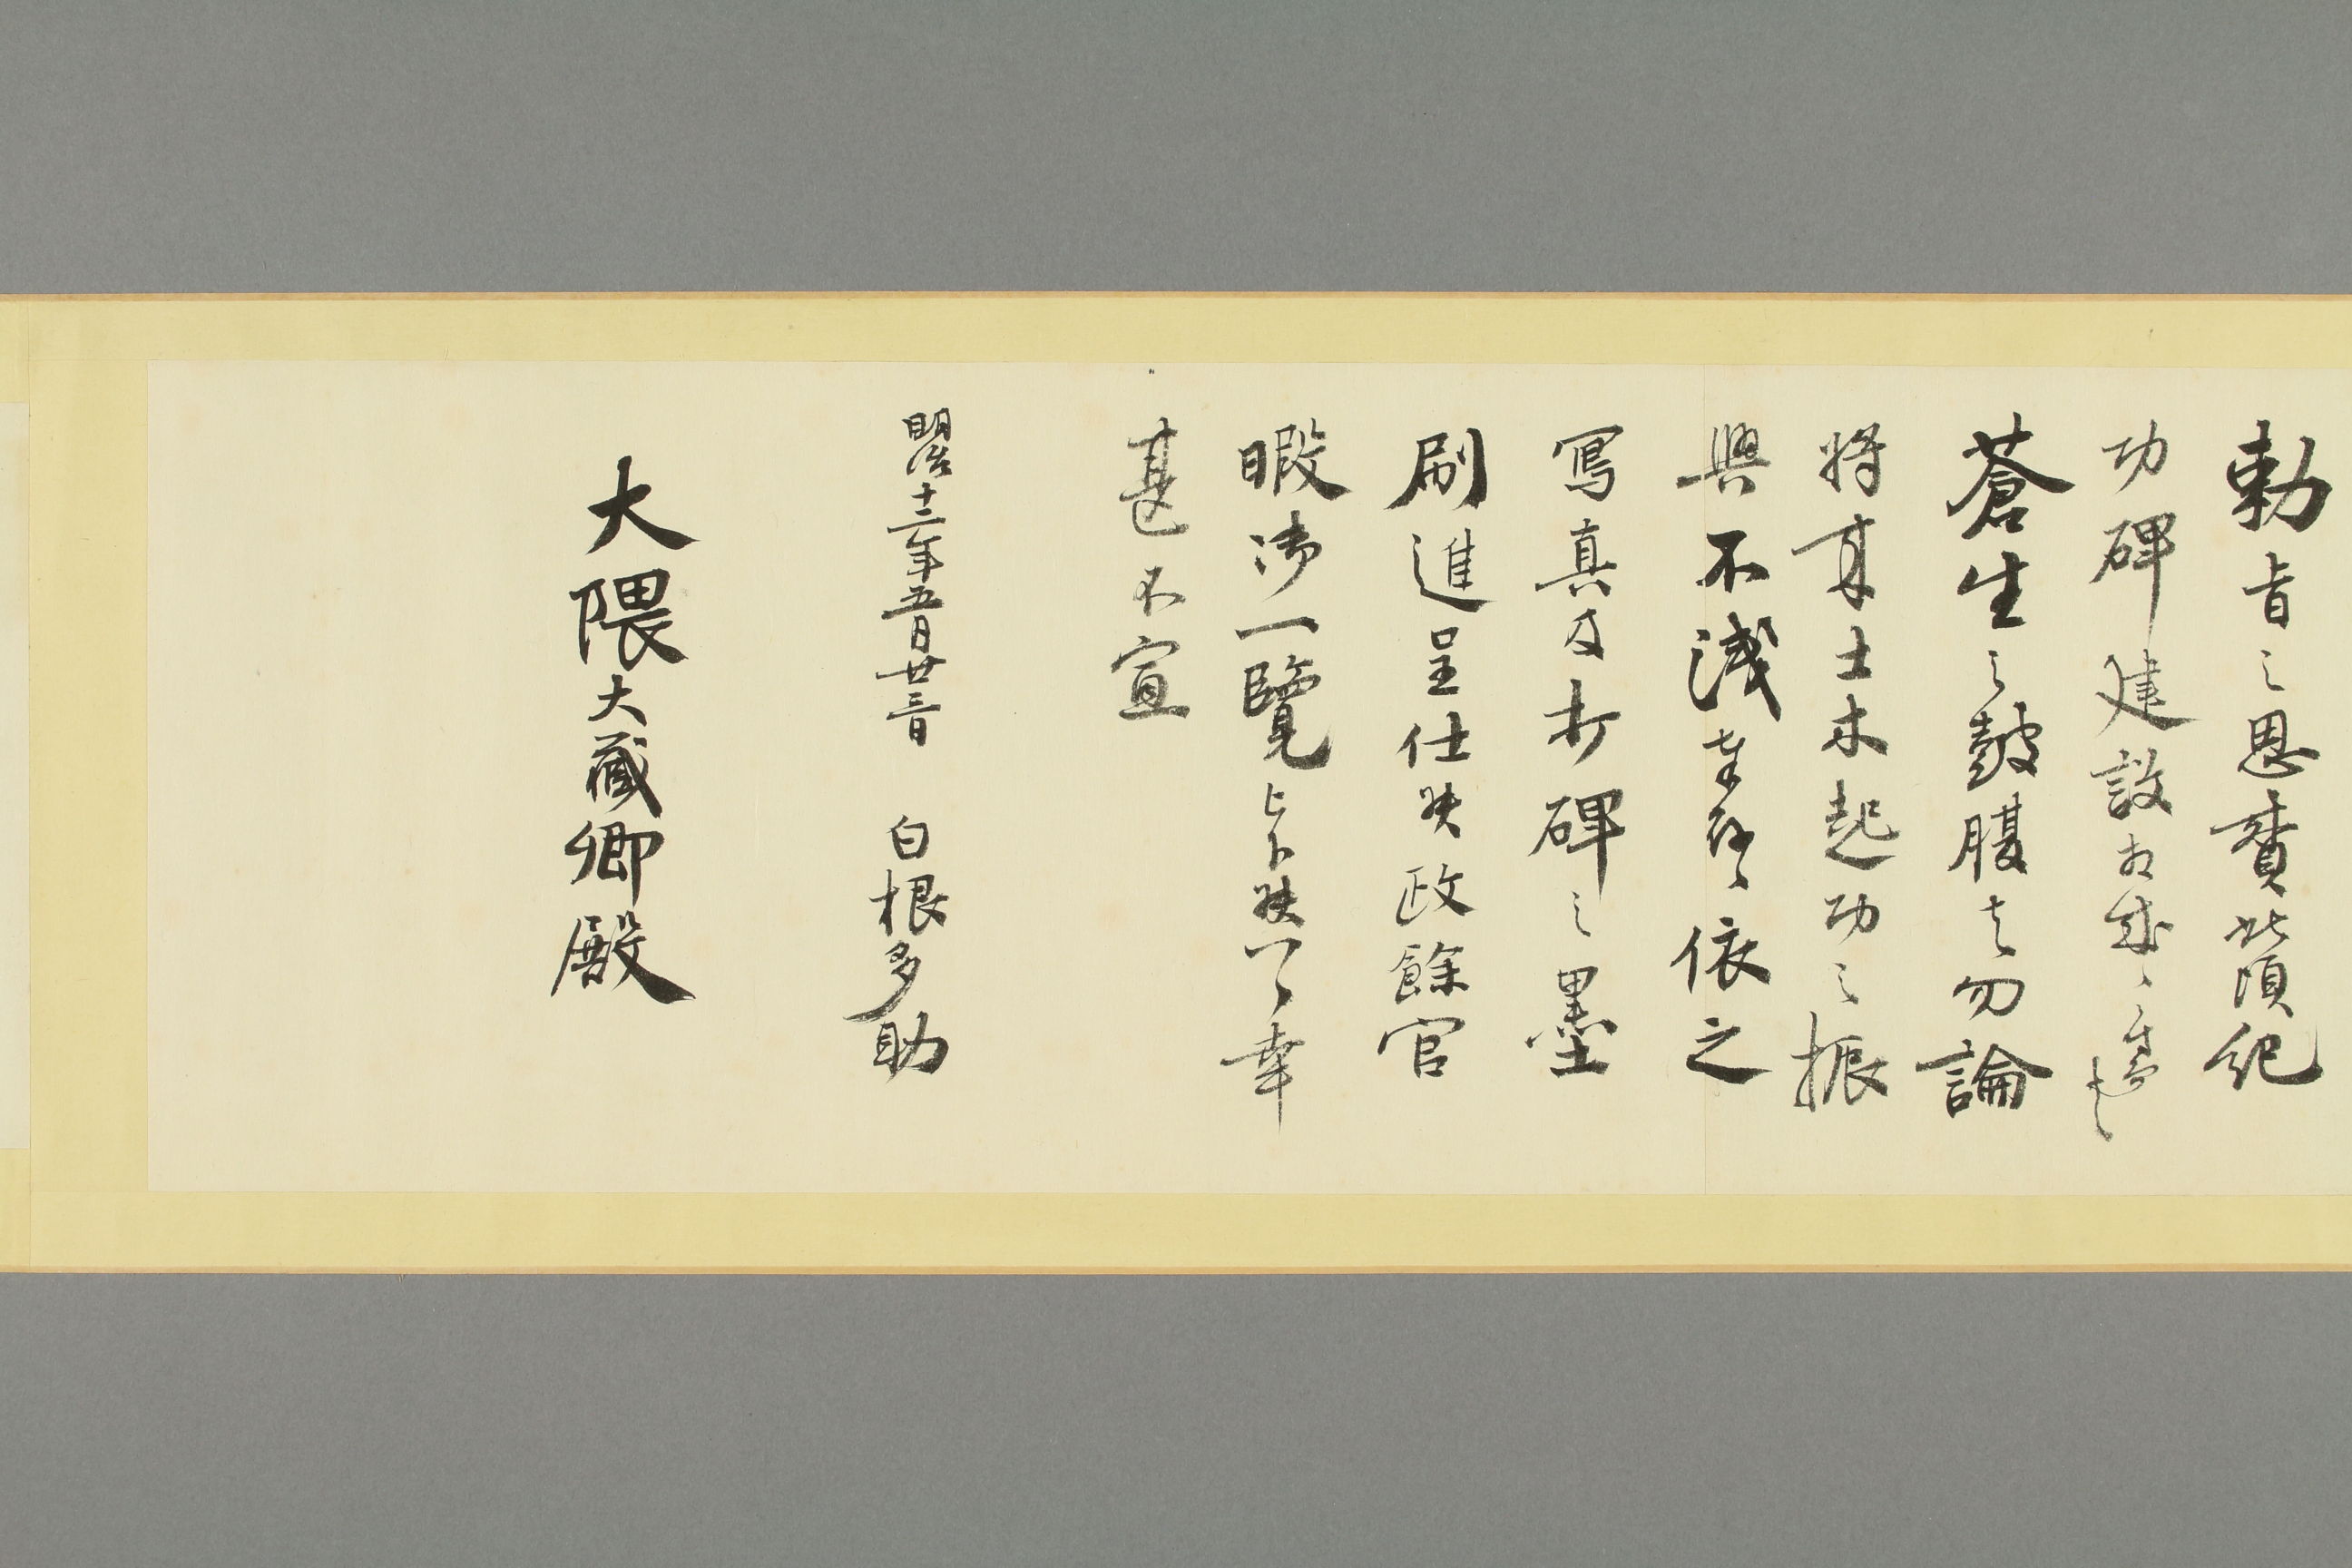 勅旨之恩賚此頃紀
功碑建設相成
蒼生之鼓腹者勿論
将来土木起功之振
興不淺奉存候依之
寫真及打碑之墨
刷進呈仕候政餘官
暇御一覽被下候ハヽ幸
甚不宣
明治十二年五月廿三日 白根多助
大隈大藏卿殿